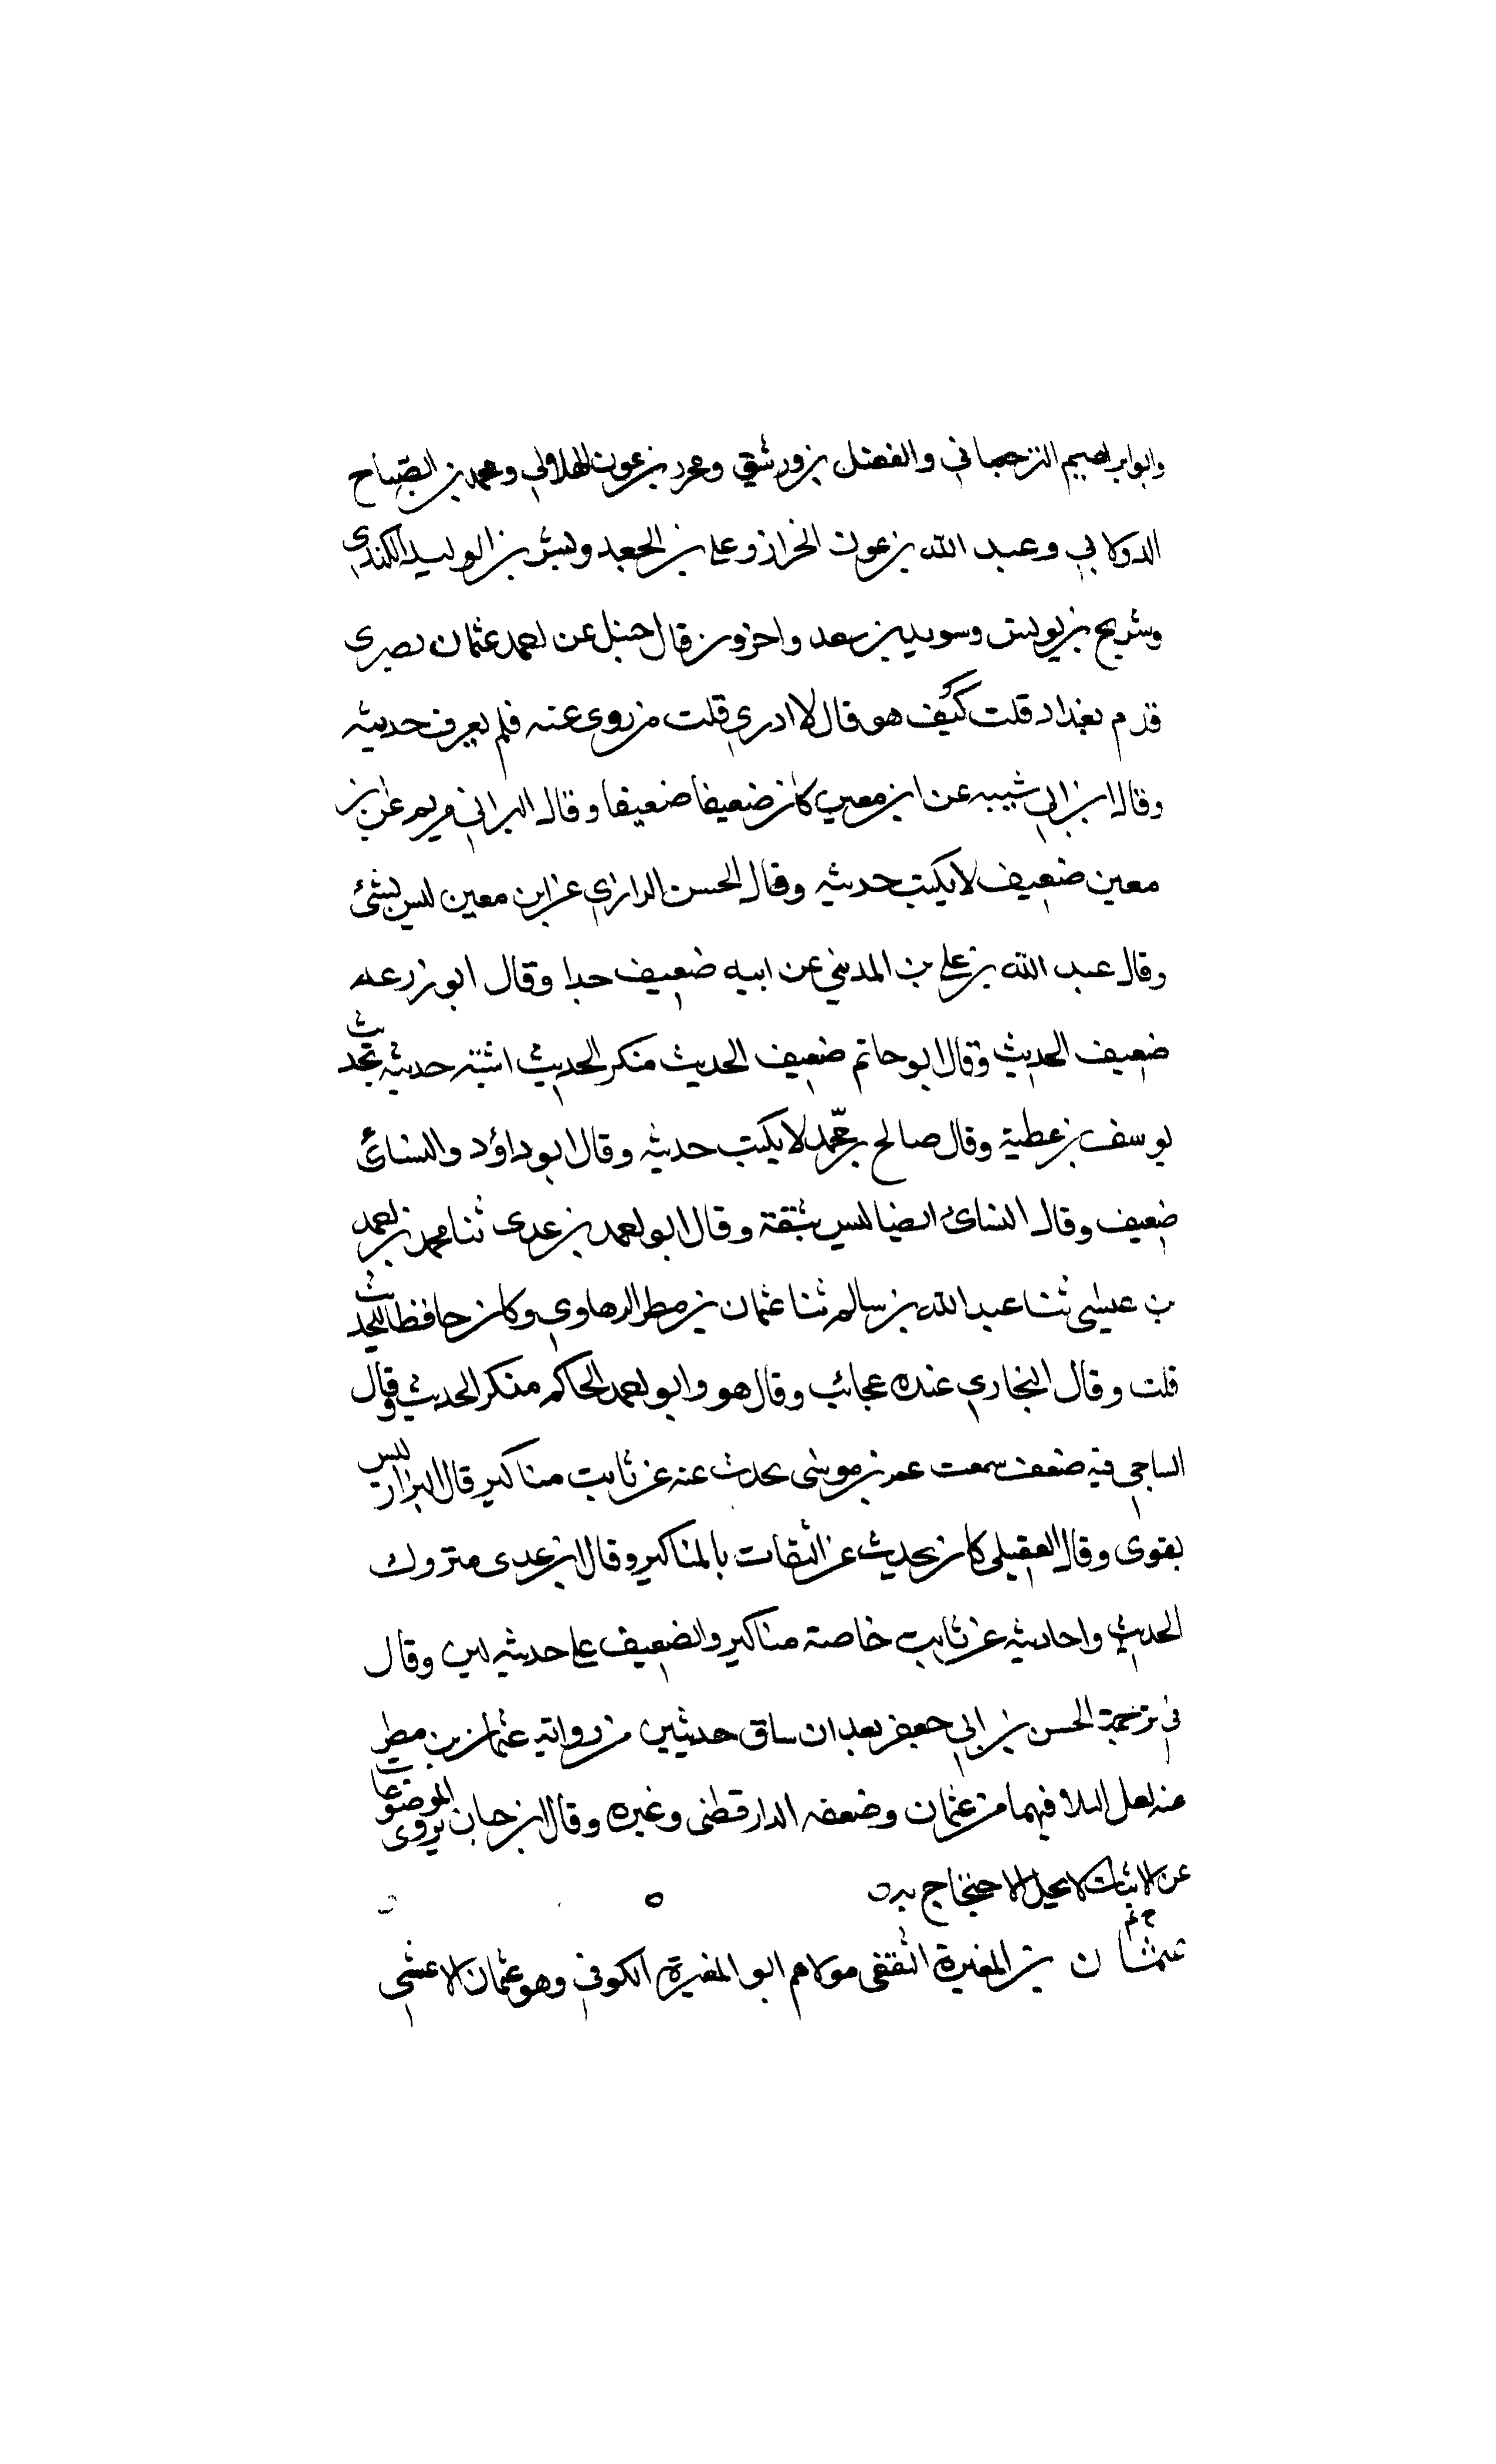 وابو ابراهيم الترجماني والفضل بن ورشقي ومحرز بن عون الهلالي ومحمد بن الصباح
الدولابي وعبد الله بن عون الخراز وعلى بن الجعد وبشر بن الوليد الكندي
وشريح بن يونس وسويد بن سعد واخرون قال حنبل عن احمد عثمان بصرى
قدم بغداد قلت كيف هو قال لا ادري قلت من روى عنه فلم يعرف حديثه
وقال ابن ابي شيبه عن ابن معين كان ضعيفا ضعيفا وقال ابن ابي مريم عن بن
معين ضعيف لا يكتب حديثه وقال الحسن الرازي عن ابن معين ليس بشئ
وقال عبد الله بن علي بن المديني عن ابيه ضعيف جدا وقال ابو زرعه
ضعيف الحديث وقال ابو حاتم ضعيف الحديث منكر الحديث اشبه حديثه بحديث
يوسف بن عطية وقال صالح بن محمد لا يكتب حديثه وقال ابو داؤد والنسائ
ضعيف وقال النسائ ايضا ليس بثقة وقال ابو احمد بن عدى ثنا محمد بن احمد
بن عيسى ثنا عبد الله بن سالم ثنا عثمان بن مطر الرهاوي وكان حافظا للحديث
قلت وقال البخاري عنده عجائب وقال هو وابو احمد الحاكم منكر الحديث وقال
الساجي فيه ضعف سمعت عمر بن موسى يحدث عنه عن ثابت مناكير قال البزار ليس
بقوى وقال العقيلى كان يحدث عن الثقات بالمناكير وقال ابن عدى متروك
الحديث واحاديثه عن ثابت خاصة مناكير والضعيف على حديثه لين وقال
في ترجمة الحسن بن ابي جعفر بعد ان ساق حديثين من رواية عثمان بن مطر
عنه لعل البلا فيهما من عثمان وضعفه الدارقطنى وغيره وقال ابن حبان يروى الموضوعات
عن الاثبات لا يحل الاحتجاج به
عثمان بن المغيرة الثقفى مولاهم ابو المغيرة الكوفي وهو عثمان الاعشى